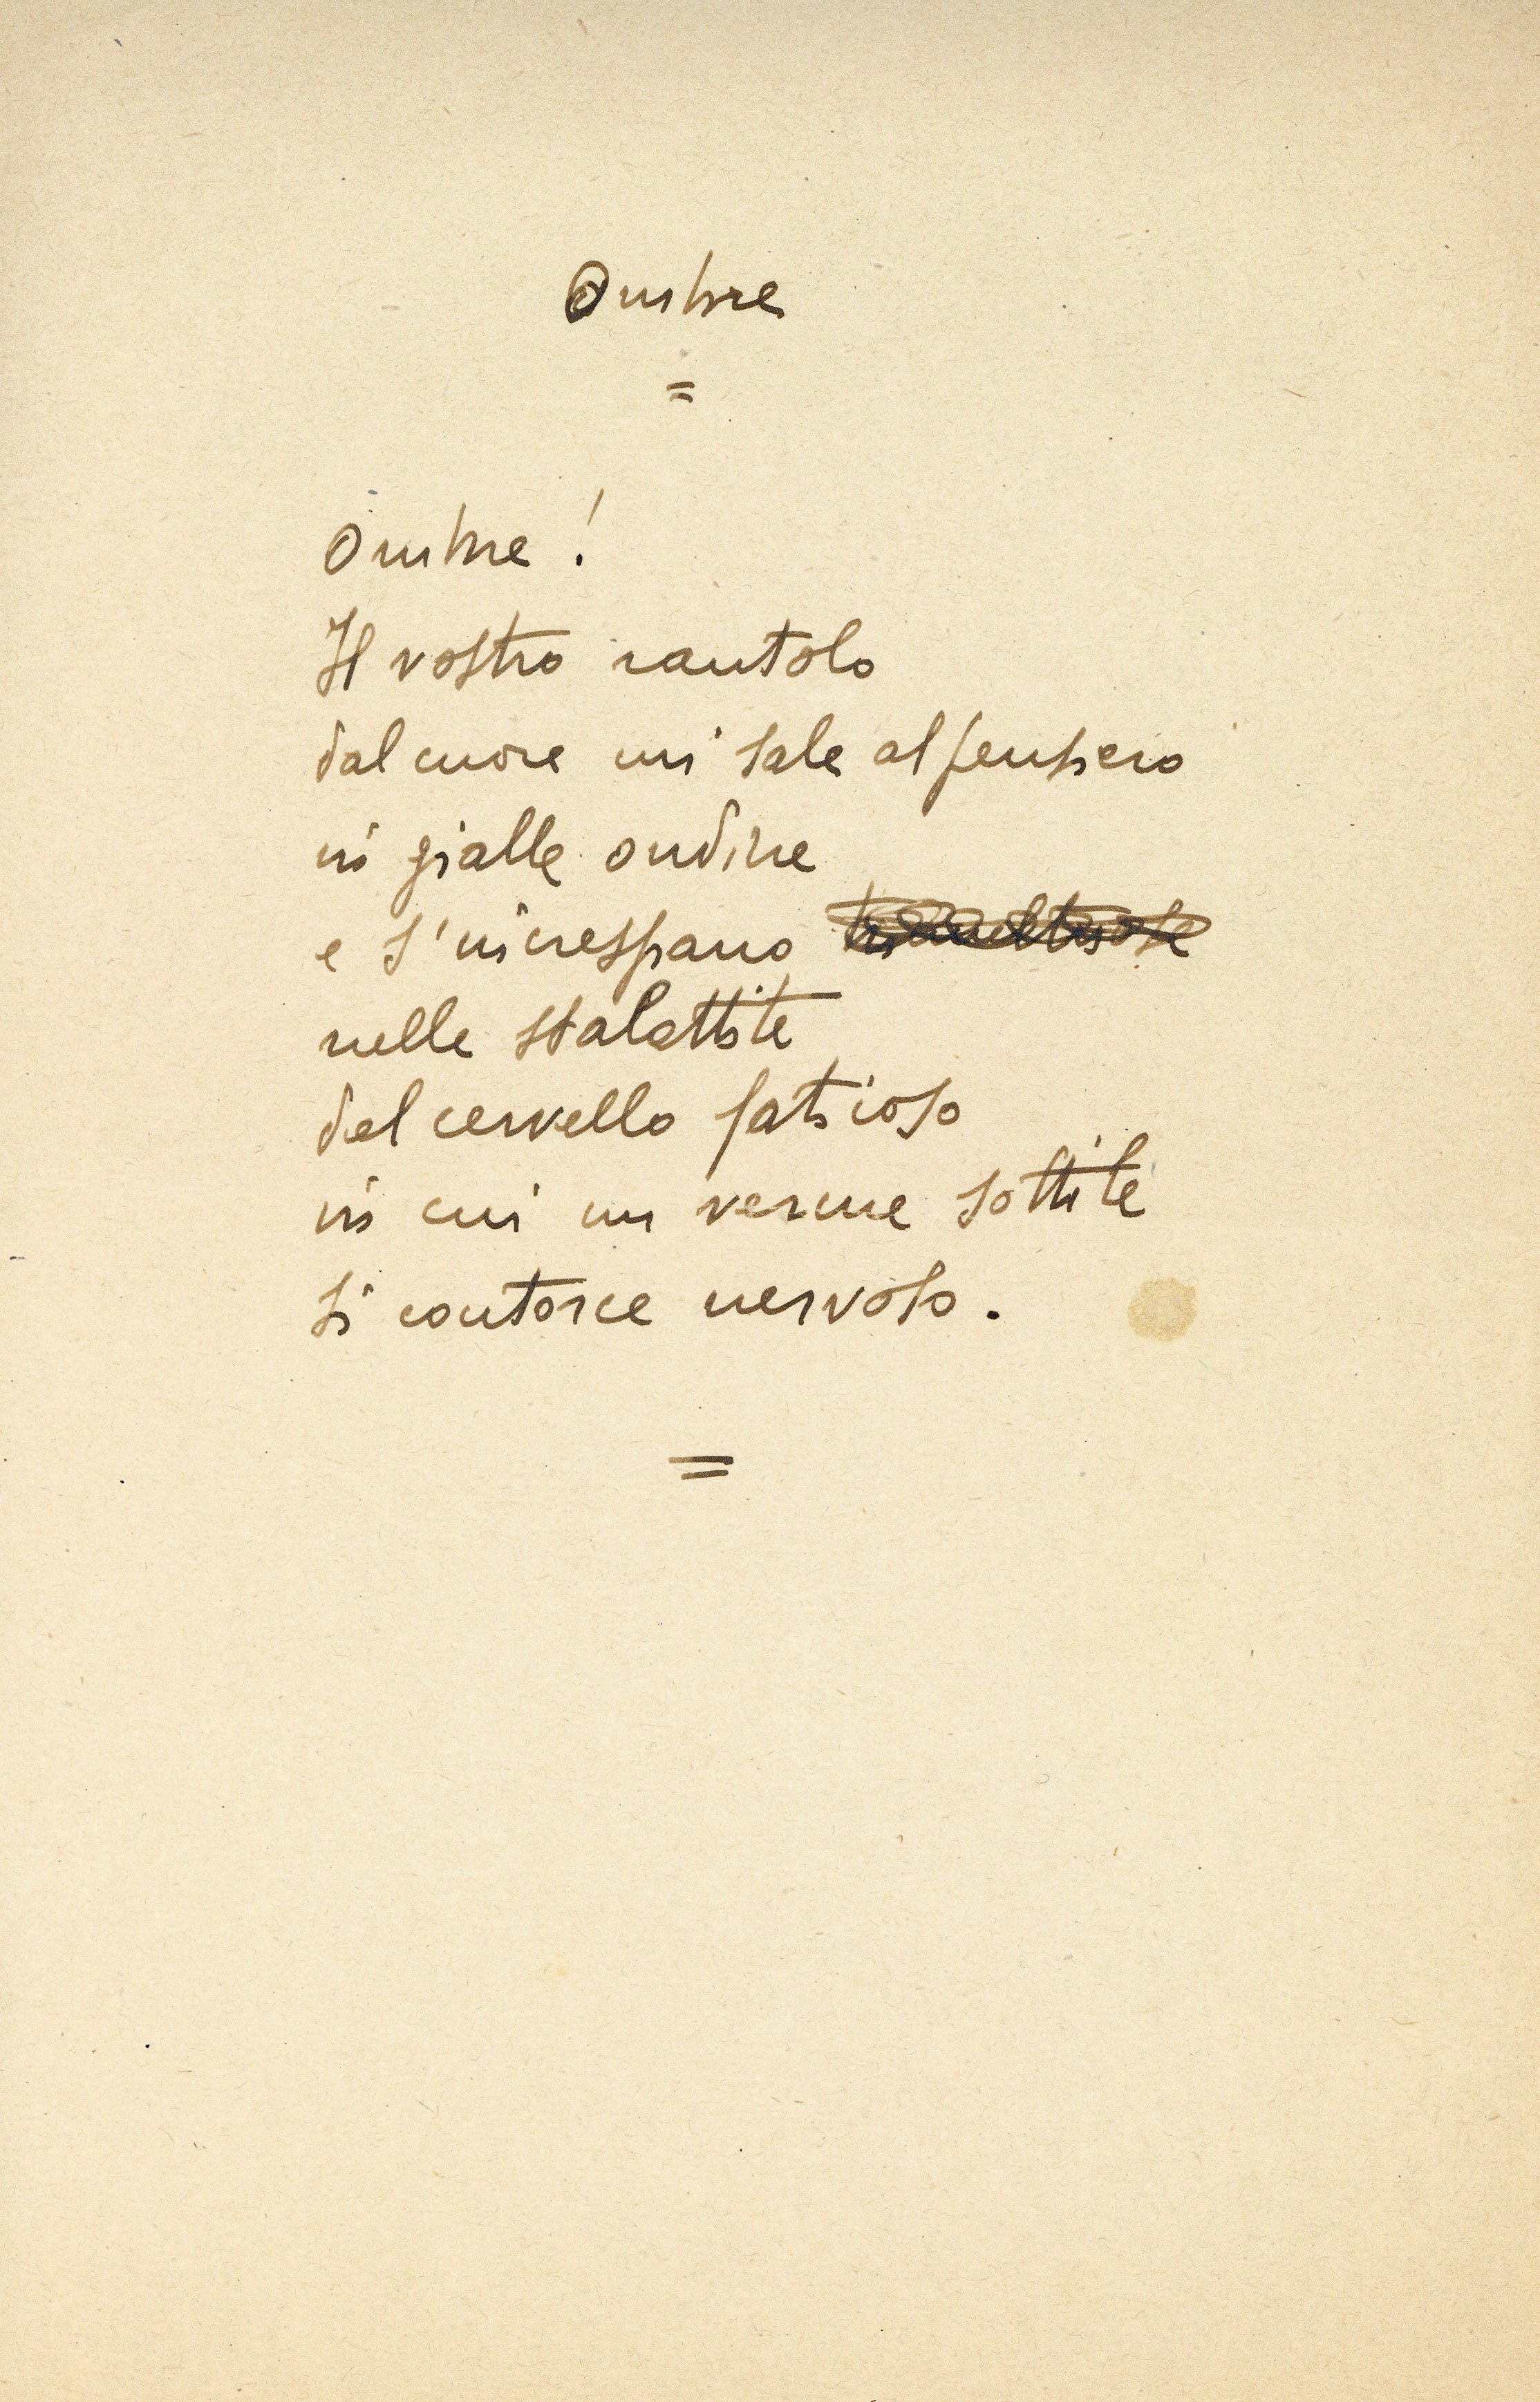 Ombre
=
Ombre!
Il vostro rantolo
dal cuore mi sale al pensiero
in gialle ondine
e s'increspano
nelle stalattite
del cervello faticoso
in cui un verme sottile
si contorce nervoso.
=